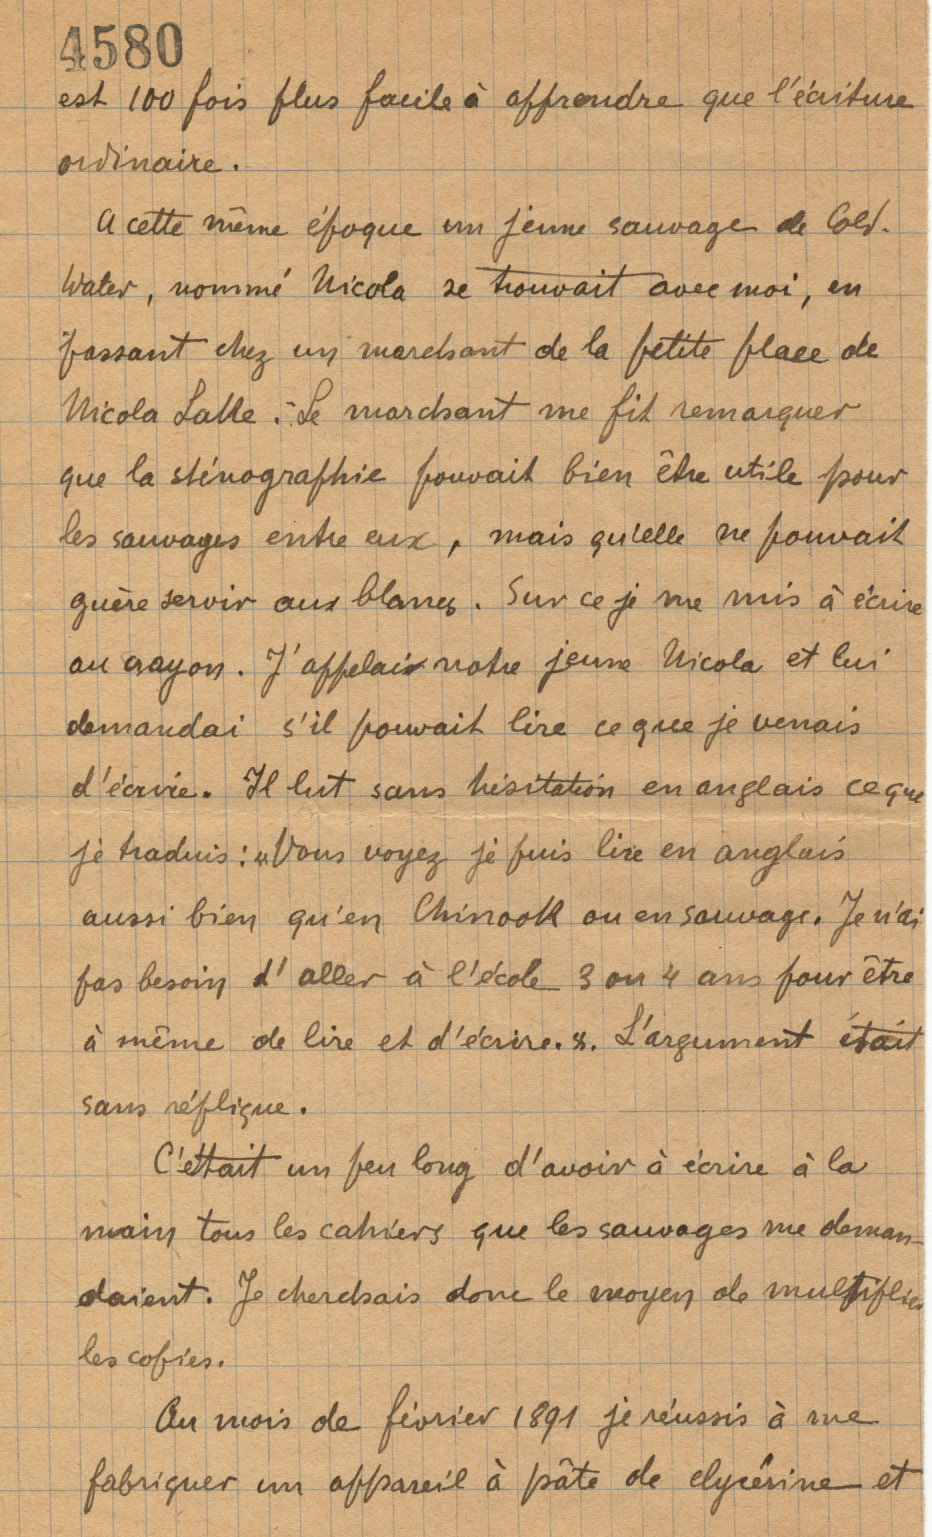 4580
est 100 fois plus facile à apprendre que l'écriture
ordinaire.
A cette même époque un jeune sauvage de Cold-
Water, nommé Nicola se trouvait avec moi, en
passant chez un marchant de la petite place de
Nicola Lake. Le marchant me fit remarquer
que la sténographie pouvait bien être utile pour
les sauvages entre eux, mais qu'elle ne pouvait
guère servir aux blancs. Sur ce je me mis à écrire
au crayon. J'appelai notre jeune Nicola et lui
demandai s'il pouvait lire ce que je venais
d'écrire. Il lut sans hésitation en anglais ce que
je traduis: „Vous voyez je puis lire en anglais
aussi bien qu'en Chinook ou en sauvage. Je n'ai
pas besoin d'aller à l'école 3 ou 4 ans pour être
à même de lire et d'écrire.". L'argument était
sans réplique.
C'était un peu long d'avoir à écrire à la
main tous les cahiers que les sauvages me deman-
daient. Je cherchais donc le moyen de multiplier
les copies.
Au mois de février 1891 je réussis à me
fabriquer un appareil à pâte de clycérine et